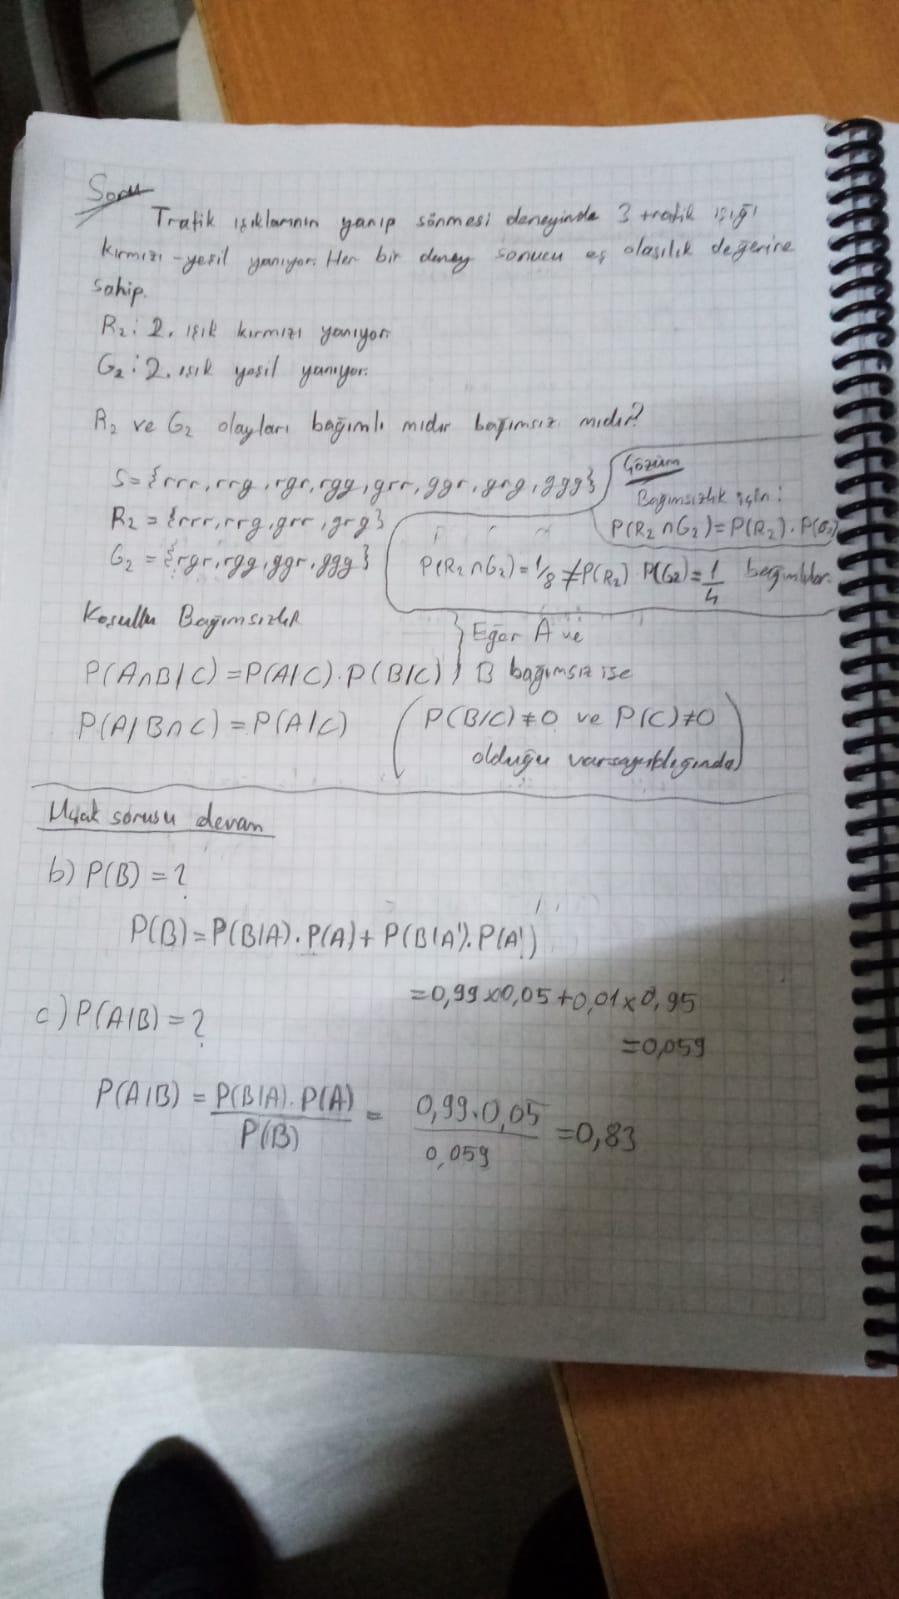 Soru
Trafik ışıklarının yanıp sönmesi deneyinde 3 trafik ışığı
kırmızı-yeşil yanıyor. Her bir deney sonucu eş olasılık değerine
sahip.
R₂: 2. ışık kırmızı yanıyor.
G₂: 2. ışık yeşil yanıyor.
R₂ ve G₂ olayları bağımlı mıdır bağımsız mıdır?
S={rrr,rrg,rgr,rgg,grr,ggr,grg,ggg}
R₂ = {rrr,rrg,grr,grg}
G₂ = {rgr,rgg,ggr,ggg}
Çözüm
Bağımsızlık için:
P(R₂∩G₂)=P(R₂).P(G₂)
P(R₂∩G₂)=1/8≠P(R₂) P(G₂)=1/4 bağımlılar.
Koşullu Bağımsızlık
P(A∩B|C)=P(A|C).P(B|C) } Eğer A ve B bağımsız ise
P(A|B∩C)=P(A|C) (P(B|C)≠0 ve P(C)≠0
olduğu varsayıldığında)
Uçak sorusu devam
b) P(B)=?
P(B)=P(B|A).P(A)+P(B|A').P(A')
=0,99x0,05+0,01x0,95
=0,059
c) P(A|B)=?
P(A|B) = P(B|A).P(A)/P(B) = 0,99.0,05/0,059 =0,83